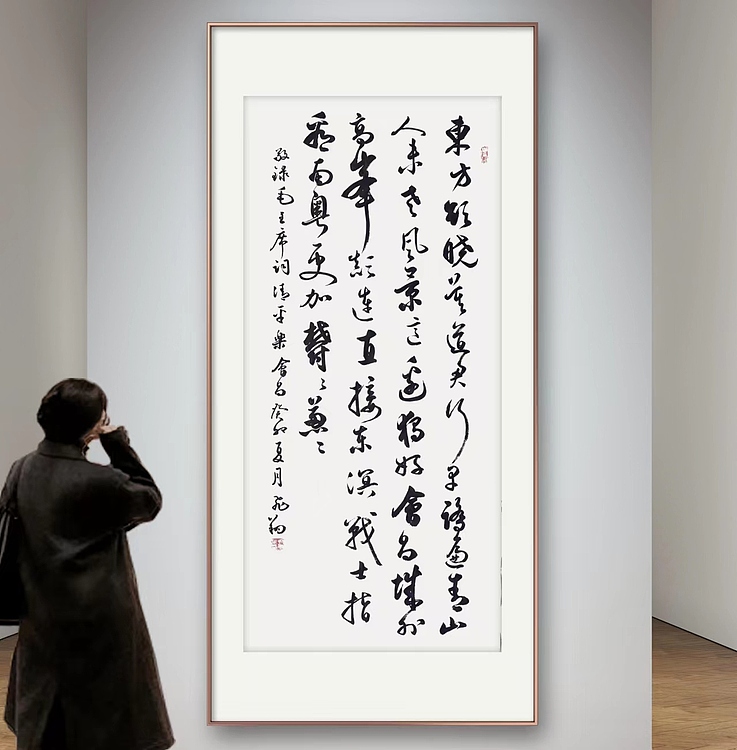 東方欲晓莫道君行早踏遍青山
人未老风景这邊獨好會昌城外
高峯颠連直接东溟戰士指
看南粤更加鬱々葱々
敬录毛主席词清平樂會昌癸卯夏月